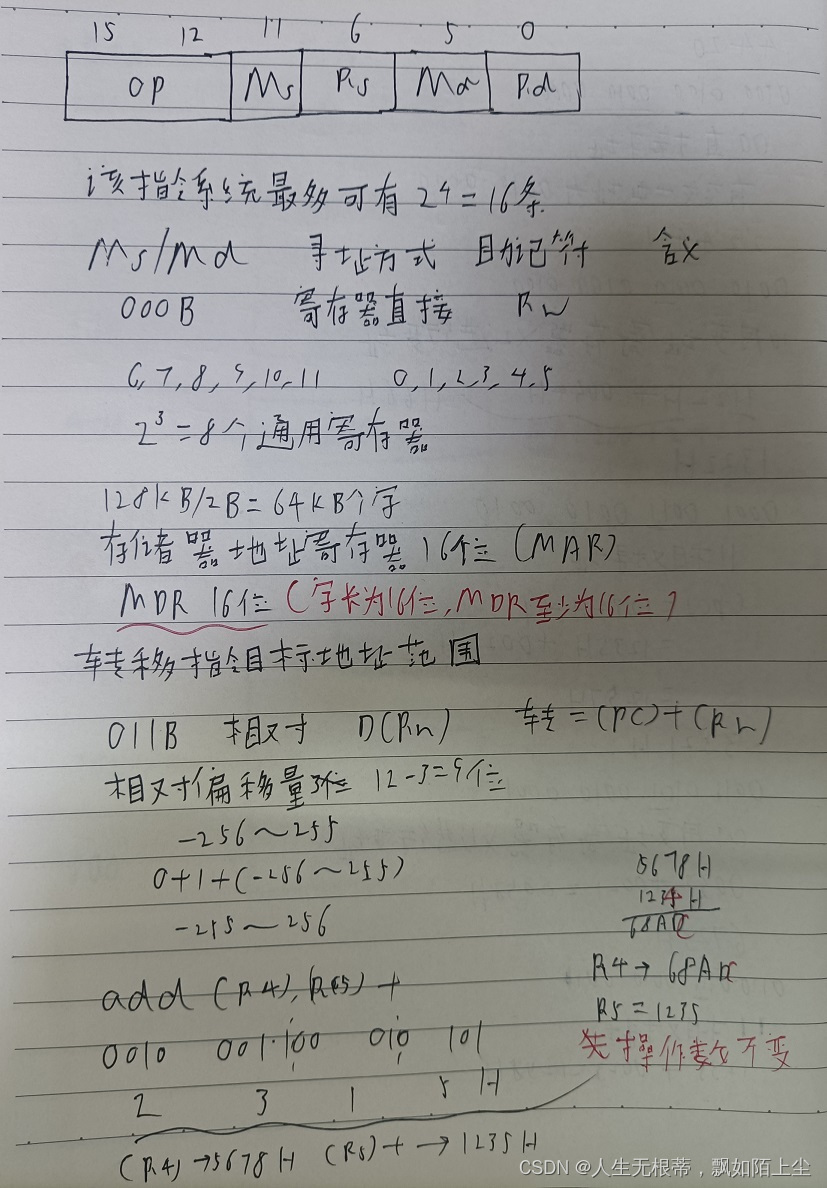 15 12 11 6 5 0
OP Ms Rs Md Rd
该指令系统最多可有 24=16条
Ms/Md 寻址方式 助记符 含义
000B 寄存器直接 Rn
6,7,8,9,10,11 0,1,2,3,4,5
2³=8个通用寄存器
128KB/2B=64KB个字
存储器地址寄存器 16位 (MAR)
MDR 16位 (字长为16位,MDR至少为16位)
转移指令目标地址范围
011B 相对 D(Rn) 转=(PC)+(Rn)
相对偏移量3位 12-3=9位
-256~255
0+1+(-256~255)
-255~256
5678H
1234H
68AC
add (R4),(R5)+
R4→68AC
R5=1235
0010 001·100 010 101
先操作数不变
2 3 1 5 H
(R4)→5678H (R5)+→1235H
CSDN @人生无根蒂,飘如陌上尘